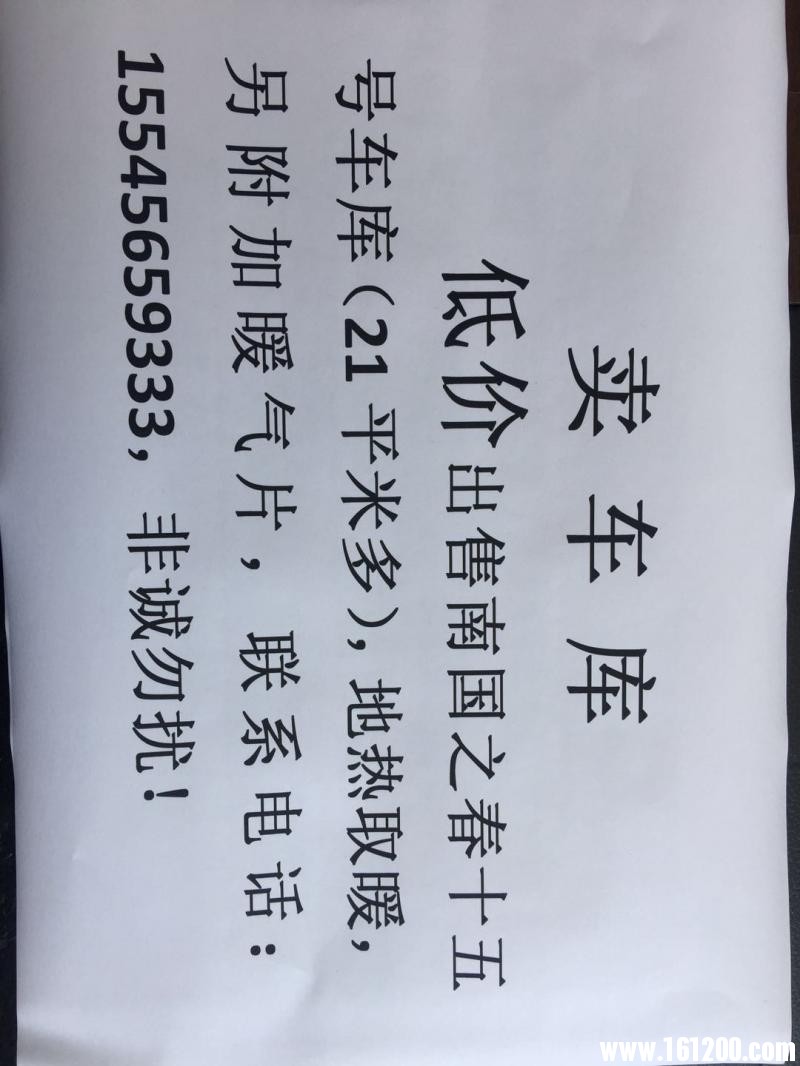 卖车库
低价出售南国之春十五
号车库（21平米多），地热取暖，
另附加暖气片，联系电话：
15545659333，非诚勿扰！
www.161200.com